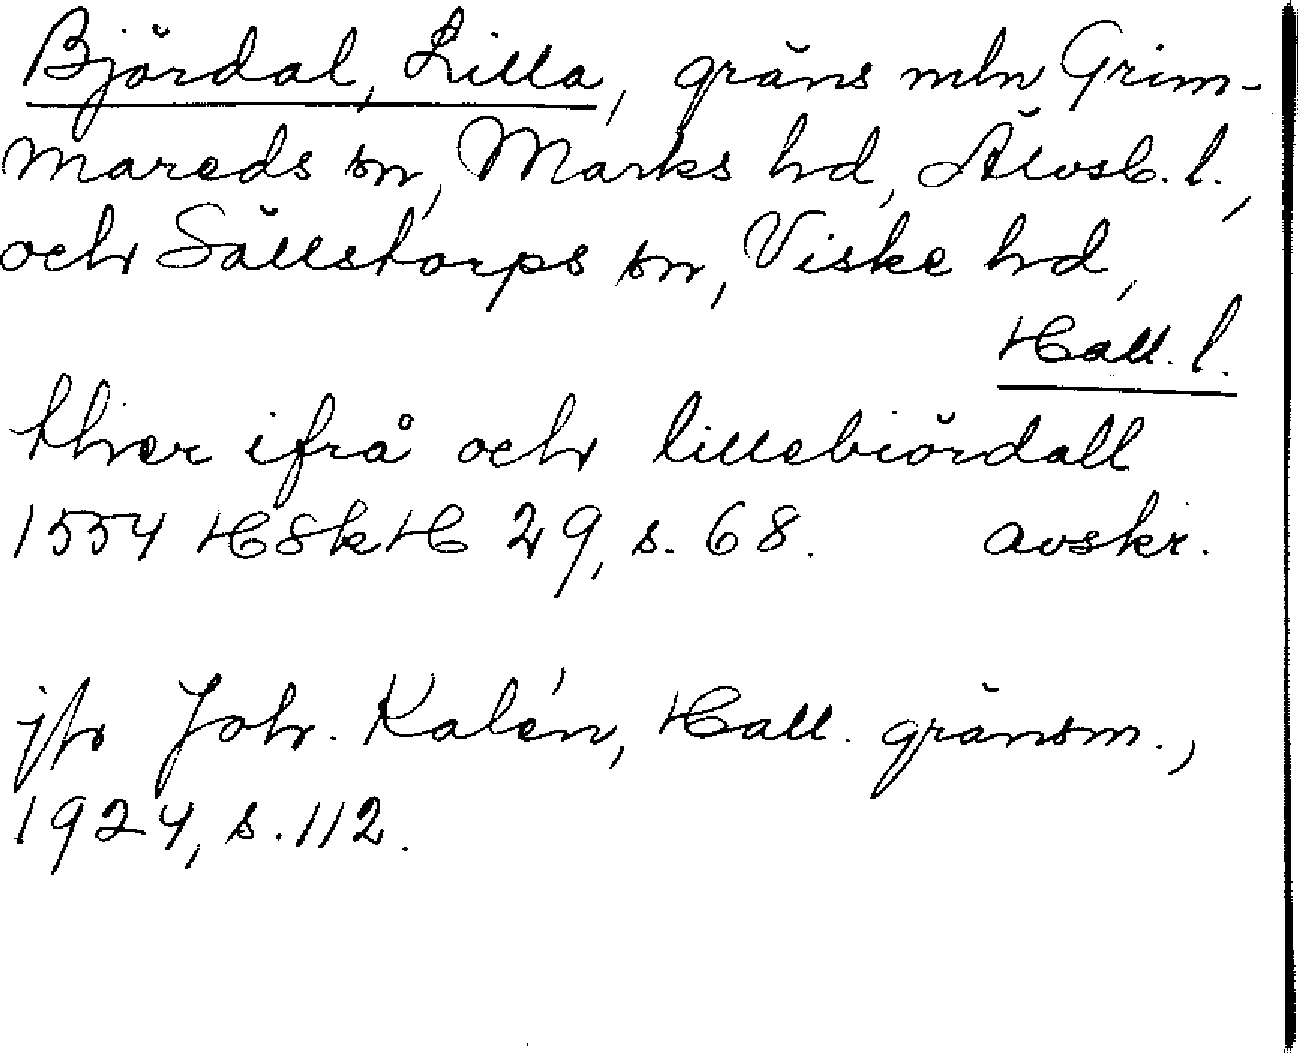 Björdal, Lilla, gräns mln Grim-
mareds sn, Marks hd, Älvsb. l.,
och Sällstorps sn, Viske hd,
Hall. l.
ther ifrå och lillebiördall
1554 HSkH 29, s. 68. avskr.
jfr Joh. Kalén, Hall. gränsm.,
1924, s. 112.